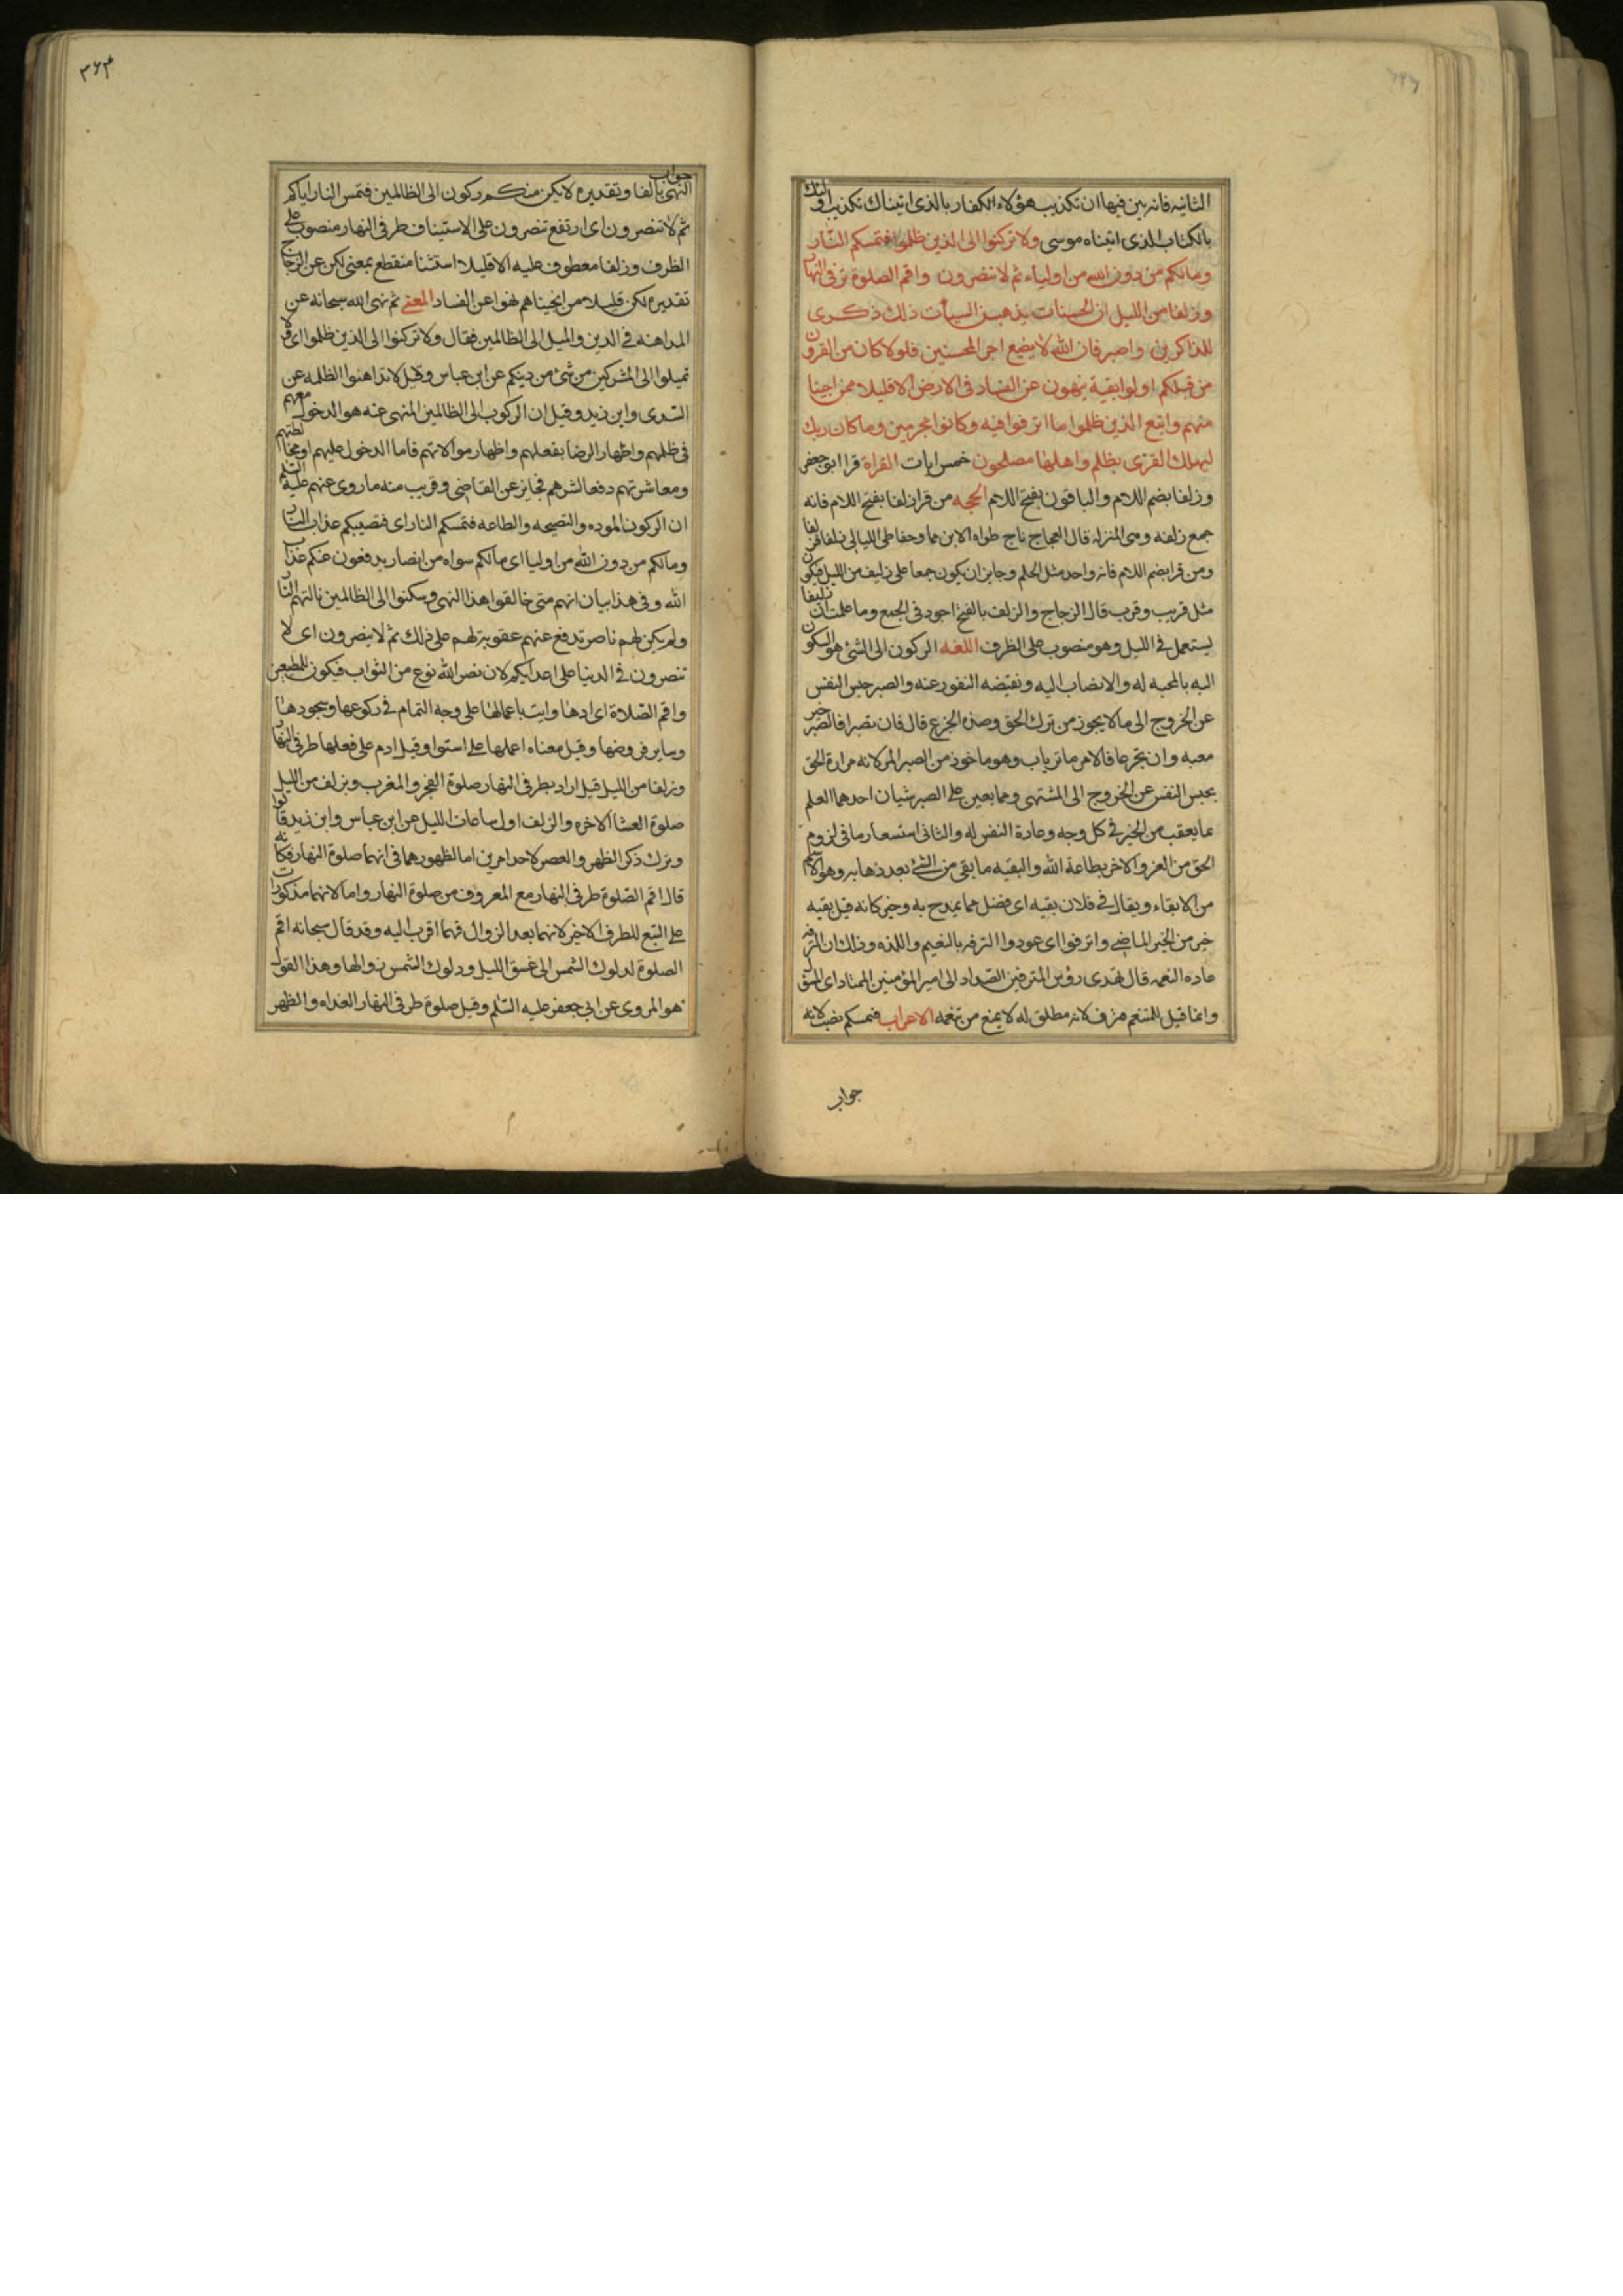 الثانيه فانه بين فيها ان تكذيب هؤلاء الكفار بالذى اتيناك تكذيب اولئك
بالكتاب الذى اتيناه موسى ولا تركنوا الى الذين ظلموا فتمسكم النار
ومالكم من دون الله من اولياء ثم لا تنصرون واقم الصلوة طرفى النهار
وزلفا من الليل ان الحسنات يذهبن السيأت ذلك ذكرى
للذاكرين واصبر فان الله لا يضيع اجر المحسنين فلولا كان من القرون
من قبلكم اولوا بقية ينهون عن الفساد فى الارض الا قليلا ممن انجينا
منهم واتبع الذين ظلموا ما اترفوا فيه وكانوا مجرمين وما كان ربك
ليهلك القرى بظلم واهلها مصلحون خمس ايات القراة قرا ابو جعفر
وزلفا بضم اللام والباقون بفتح اللام الحجه من قرا زلفا بفتح اللام فانه
جمع زلفه وهى المنزله قال العجاج ناج طواه الاين مما وجفا طى الليالى زلفا فزلفا
ومن قرا بضم اللام فانه واحد مثل الحلم وجايز ان يكون جمعا على زليف من الليل فيكون
مثل قريب وقرب قال الزجاج والزلف بالفتح اجود فى الجمع وما علمت ان زليفا
يستعمل فى الليل وهو منصوب على الظرف اللغه الركون الى الشئ هو السكون
اليه بالمحبه له والانصاب اليه ونقيضه النفور عنه والصبر حبس النفس
عن الخروج الى ما لا يجوز من ترك الحق وضده الجزع قال فان تصبرا فالصبر خير
مغبه وان تجزعا فالامر ما تريان وهو ماخوذ من الصبر المر لانه مرارة الحق
بحبس النفس عن الخروج الى المشتهى ومما يعين على الصبر شيان احدهما العلم
بما يعقب من الخير فى كل وجه وعادة النفس له والثانى استشعار ما فى لزوم
الحق من العز والاخر بطاعة الله والبقيه ما بقى من الشئ بعد ذهابه وهو الاسم
من الابقاء ويقال فى فلان بقيه اى فضل مما يمدح به وخير كانه قيل بقيه
خير من الخير الماضى واترفوا اى عودوا الترفه بالنعيم واللذه وذلك ان الترفه
عاده النعمه قال تهدى رؤس المترفين الصداد الى امير المؤمنين الممتاد اى المسئول
وانما قيل للمتنعم مترف لانه مطلق له لا يمنع من تنعمه الاعراب فتمسكم نصب لانه
جواب
۳۶۴
جواب
النهى بالفا وتقديره لا يكن منكم ركون الى الظالمين فتمس النار اياكم
ثم لا تنصرون اى ارتفع تنصرون على الاستيناف طرفى النهار منصوب على
الظرف وزلفا معطوف عليه الا قليلا استثنا منقطع بمعنى لكن عن الزجاج
تقديره لكن قليلا ممن انجيناهم نهوا عن الفساد المعنى ثم نهى الله سبحانه عن
المداهنه فى الدين والميل الى الظالمين فقال ولا تركنوا الى الذين ظلموا اى ولا
تميلوا الى المشركين من شئ من دينكم عن ابن عباس وقيل لا تداهنوا الظلمه عن
السدى وابن زيد وقيل ان الركون الى الظالمين المنهى عنه هو الدخول معهم
فى ظلمهم واظهار الرضا بفعلهم واظهار موالاتهم فاما الدخول عليهم او مخالطتهم
ومعاشرتهم دفعا لشرهم فجايز عن القاضى وقريب منه ما روى عنهم عليه السلم
ان الركون الموده والنصيحه والطاعه فتمسكم النار اى فتصيبكم عذاب النار
ومالكم من دون الله من اوليا اى مالكم سواه من انصار يدفعون عنكم عذاب
الله وفى هذا بيان انهم متى خالفوا هذا النهى وسكنوا الى الظالمين نالتهم النار
ولم يكن لهم ناصر يدفع عنهم عقوبة لهم على ذلك ثم لا ينصرون اى لا
تنصرون فى الدنيا على اعدايكم لان نصر الله نوع من الثواب فيكون للمطيعين
واقم الصلاة اى ادها وايت باعمالها على وجه التمام فى ركوعها وسجودها
وساير فروضها وقيل معناه اعملها على استوا وقيل ادم على فعلها طرفى النهار
وزلفا من الليل قيل اراد بطرفى النهار صلوة الفجر والمغرب وبزلف من الليل
صلوة العشا الاخره والزلف اول ساعات الليل عن ابن عباس وابن زيد قالوا
وترك ذكر الظهر والعصر لاحد امرين اما لظهورهما فى انهما صلوة النهار فكانه
قال اقم الصلوة طرفى النهار مع المعروف من صلوة النهار واما لانهما مذكورات
على التبع للطرف الاخير لانهما بعد الزوال فهما اقرب اليه وقد قال سبحانه اقم
الصلوة لدلوك الشمس الى غسق الليل ودلوك الشمس زوالها وهذا القول
هو المروى عن ابى جعفر عليه السلم وقيل صلوة طرفى النهار الغداه والظهر